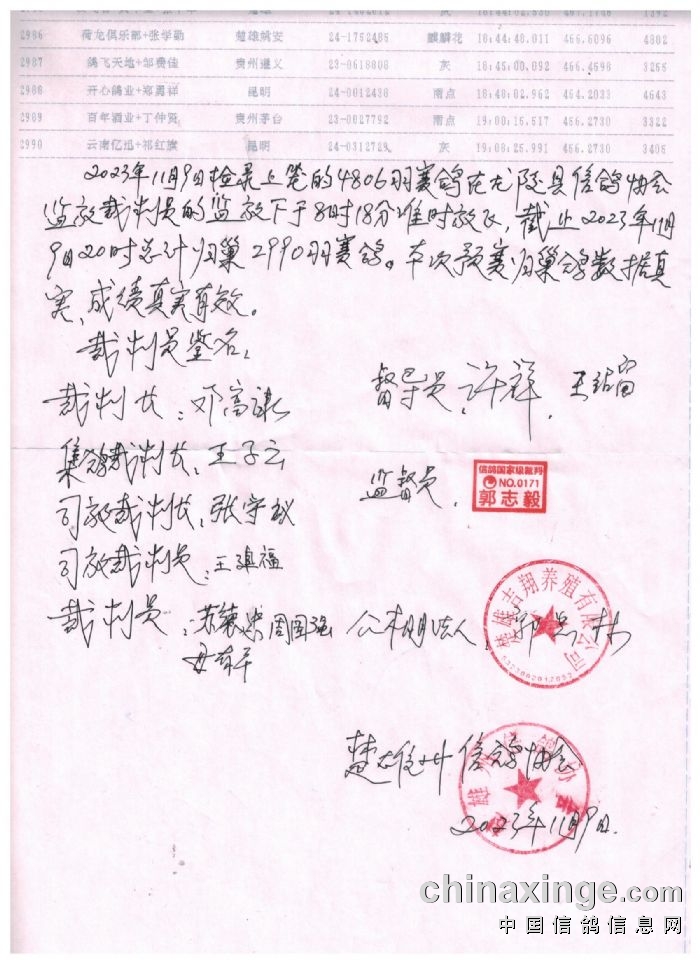 2986 荷龙俱乐部+张学勤 楚雄姚安 24-1752485 麒麟花 18:44:48.011 466.6096 4802
2987 鸽飞天地+邹费佳 贵州遵义 23-0618808 灰 18:45:00.092 466.4598 3256
2988 开心鸽业+郑勇祥 昆明 24-0012438 雨点 18:48:02.962 464.2033 4643
2989 百年酒业+丁仲贤 贵州茅台 23-0027792 雨点 19:00:16.517 456.2730 3322
2990 云南亿迅+祁红旗 昆明 24-0312729 灰 19:08:25.991 456.2730 3405
2023年11月9日检录上笼的4806羽赛鸽在龙陵县信鸽协会
监放裁判员的监放下于8时18分准时放飞,截止2023年11月
9日20时总计归巢2990羽赛鸽。本次预赛归巢鸽数据真
实,成绩真实有效。
裁判员鉴名:
裁判长:邓高 督导员:许祥.王
集鸽裁判长:王子云
监督员.
信鸽国家级裁判
NO.0171
郭志毅
司放裁判长:张宇
司放裁判员:王福
裁判员:苏 周国强 公棚法人:郭
楚雄吉翔养殖有限公司
楚雄州信鸽协会
2023年11月9日.
chinaxinge.com
中国信鸽信息网